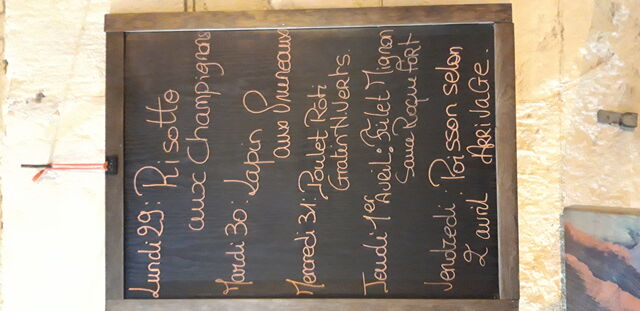 Lundi 29: Risotto
aux Champignons
Mardi 30: Lapin
aux Pruneaux
Mercredi 31: Poulet Rôti
Gratin H. Verts.
Jeudi 1er Avril: Filet Mignon
Sauce Roquefort
Vendredi: Poisson selon
2 avril ARRIVAGE.